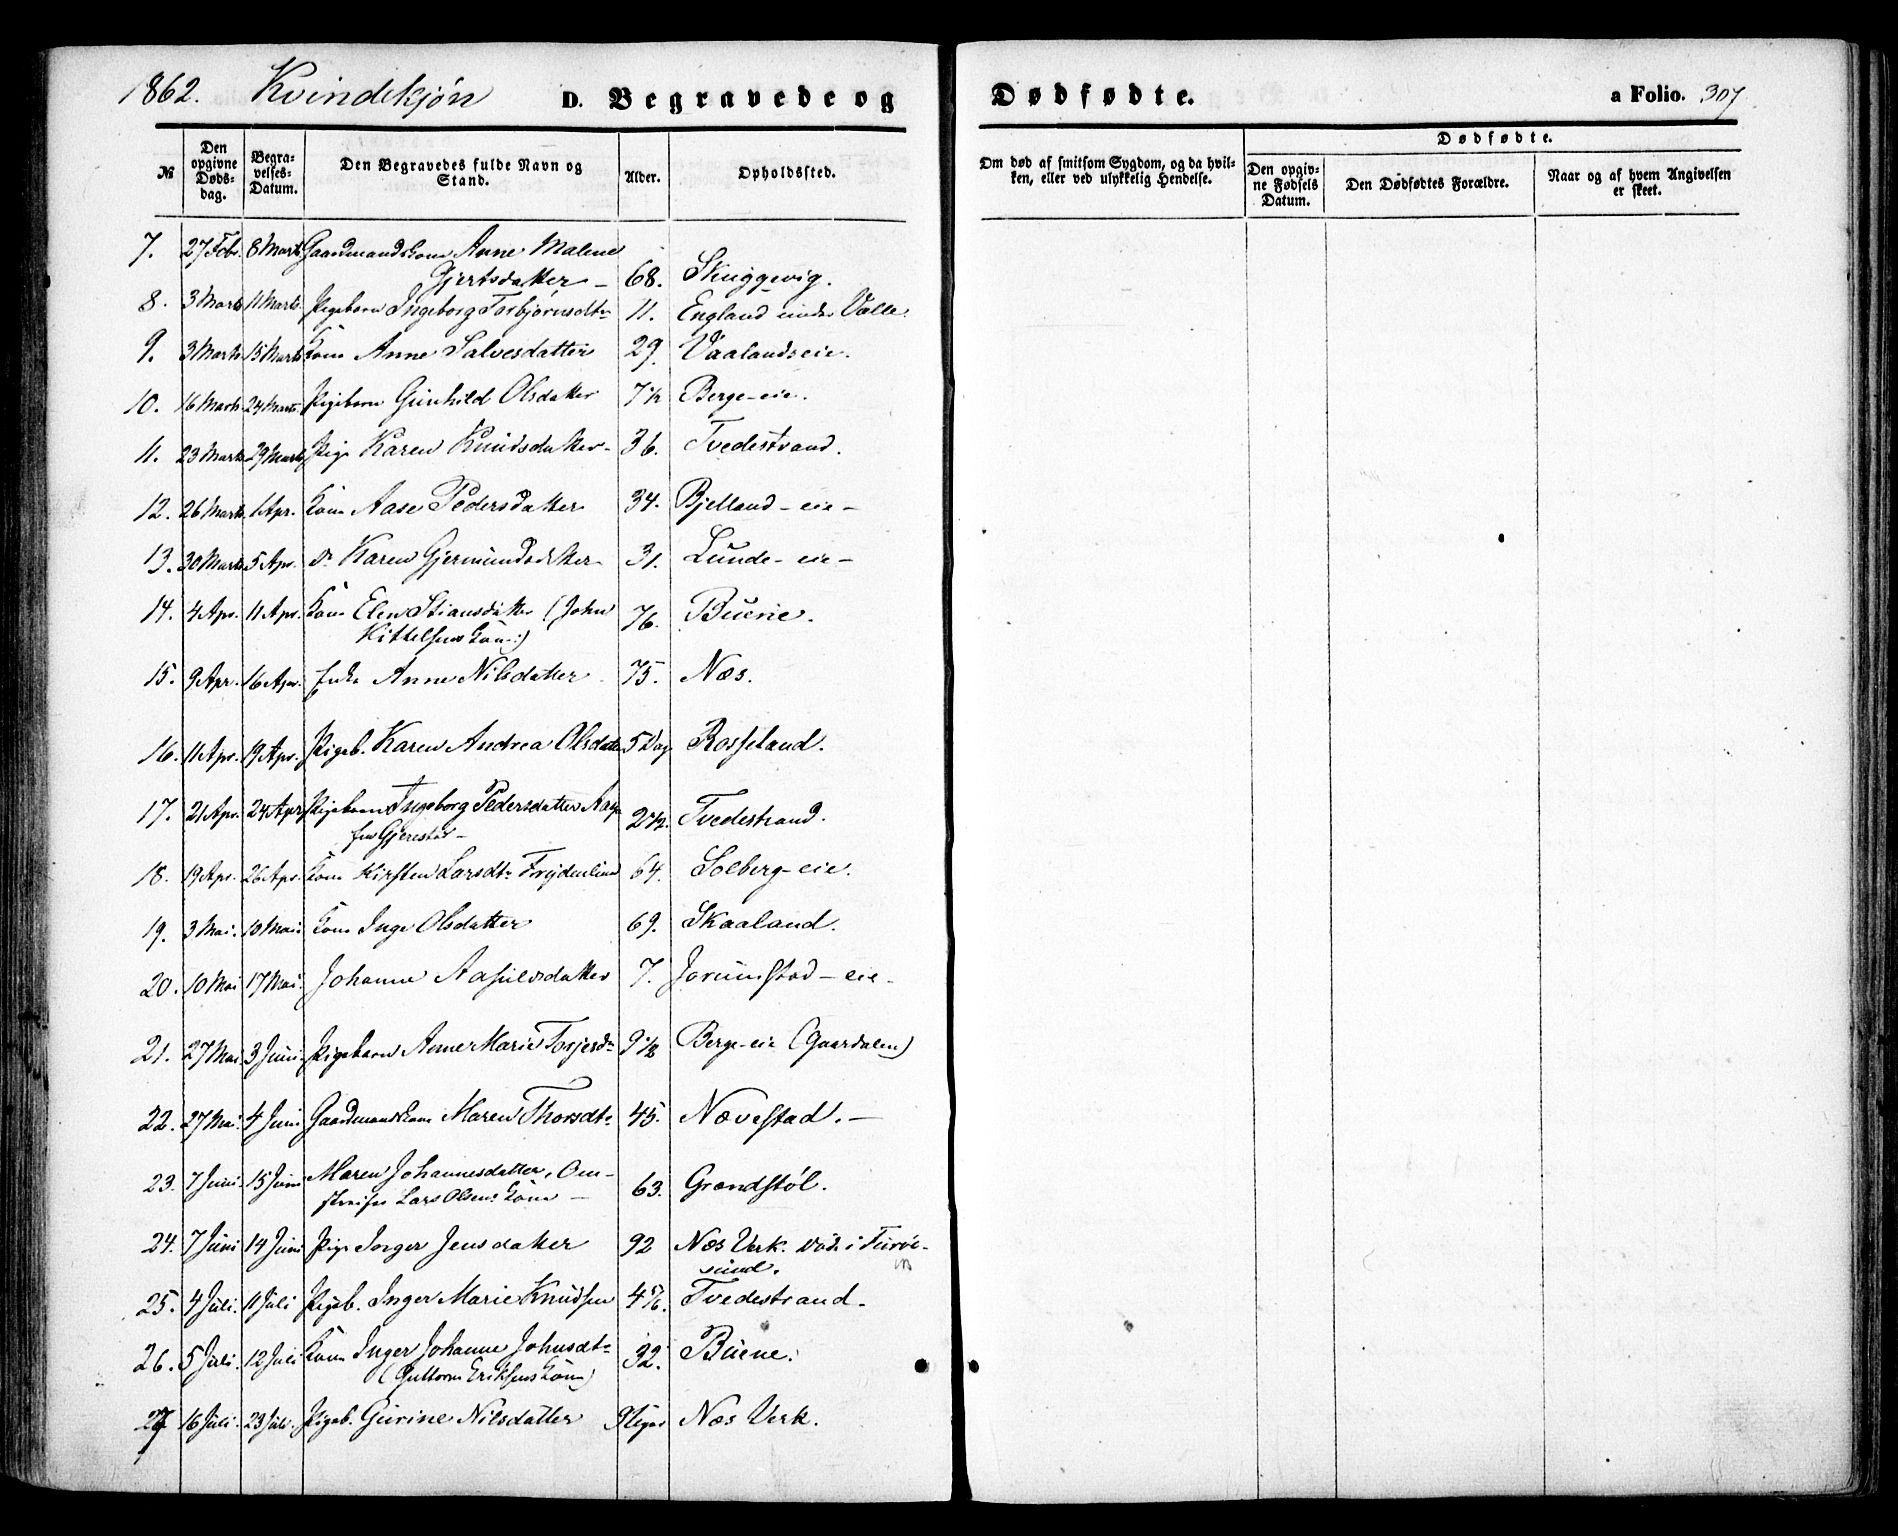 1862. Kvindekjøn D. Begravede og Dødfødte. a Folio. 307
№
Den opgivne Døds-dag.
Begra-velses-Datum.
Den Begravedes fulde Navn og Stand.
Alder.
Opholdssted.
Om død af smitsom Sygdom, og da hvil-ken, eller ved ulykkelig Hendelse.
Dødfødte.
Den opgiv-ne Fødsels Datum.
Den Dødfødtes Forældre.
Naar og af hvem Angivelsen er skeet.
7. 27 Febr. 8 Marts Gaardmandskone Anne Malene
Gjertsdatter – 68. Skuggevig.
8. 3 Marts 11 Marts. Pigebarn Ingeborg Torbjørnsdtr 11. England under Valle.
9. 3 Marts 15 Marts Kone Anne Salvesdatter 29. Vaalandseie.
10. 16 Marts 24 Marts. Pigebarn Gunhild Olsdatter 7 1/2 Berge-eie.
11. 23 Marts 29 Marts Pige Karen Knudsdatter 36. Tvedestrand.
12. 26 Marts. 1 Apr. Kone Aase Pedersdatter 34. Bjelland-eie –
13. 30 Marts 5 Apr. do Karen Gjermundsdatter 31. Lunde-eie –
14. 4 Apr. 11 Apr. Kone Elen Stiansdatter (John
Kittelsens Kone:) 76. Buene.
15. 9 Apr. 16 Apr. Enke Anne Nilsdatter 75. Næs.
16. 11 Apr. 19 Apr. Pigeb. Karen Andrea Olsdatter 5 Dag Rosseland.
17. 21 Apr. 24 Apr. Pigebarn Ingeborg Pedersdatter
fra Gjerestad – 2 1/2. Tvedestrand.
18. 19 Apr. 26 Apr. Kone Kirsten Larsdtr Frydenlund 64. Solberg-eie.
19. 3 Mai. 10 Mai. Kone Inge Olsdatter 69. Skaaland.
20. 10 Mai 17 Mai. Johanne Aasulvsdatter 7. Jorunstad – eie –
21. 27 Mai. 3 Juni. Pigebarn Anne Marie Terjesdr 9 1/2 Berge-eie (Gaardalen)
22. 27 Mai. 4 Juni Gaardmandskone Maren Thorsdtr 45. Nævestad. –
23. 7 Juni. 15 Juni Maren Johannesdatter, Om-
streifer Lars Olsens Kone – 63. Grændstøl.
24. 7 Juni 14 Juni Pige Inger Jensdatter 92 Næs Verk. død i Furøe-
sund.
25. 4 Juli. 11 Juli Pigeb. Inger Marie Knudsen 4 5/6. Tvedestrand.
26. 5 Juli. 12 Juli Kone Inger Johanne Johnsdtr
(Guttorm Eriksens Kone) 32. Buene.
27 16 Juli. 23 Juli. Pigeb. Gurine Nilsdatter 9 Uger Næs Verk.